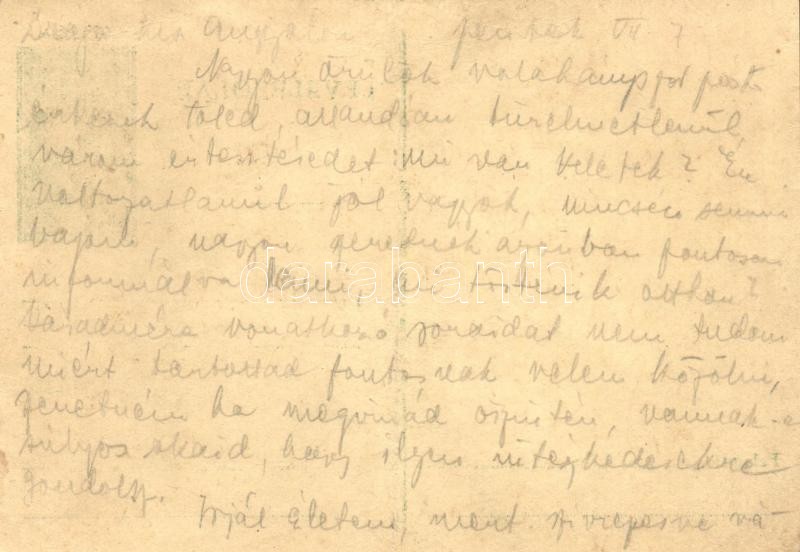 Drága kis Angyalom péntek VII 7
Nagyon örülök valahányszor post
érkezik tőled, állandóan türelmetlenül
várom értesítésedet mi van veletek? Én
változatlanul jól vagyok, nincsen semmi
bajom, nagyon szeretnék azonban pontosan
informálva lenni, mi történik otthon?
vonatkozó soraidat nem tudom
miért tartottad fontosnak velem közölni,
szeretném ha megírnád őszintén, vannak-e
súlyos okaid, hogy ilyen intézkedésekre
gondolsz.
Írjál Életem, mert repesve vá-
darabanth